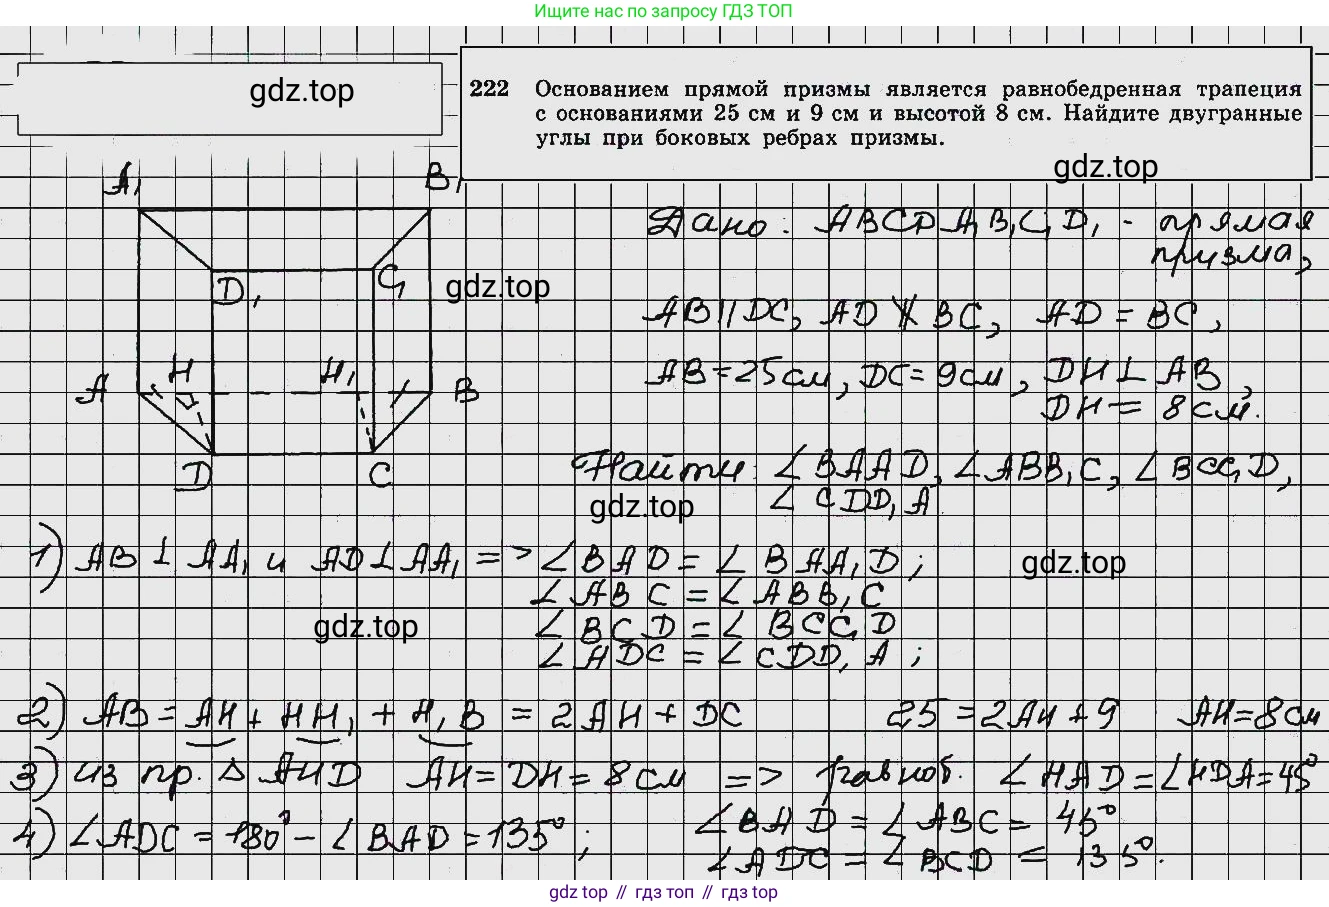 Ищите нас по запросу ГДЗ ТОП
gdz.top
222 Основанием прямой призмы является равнобедренная трапеция
с основаниями 25 см и 9 см и высотой 8 см. Найдите двугранные
углы при боковых ребрах призмы.
gdz.top
A₁ B₁
D₁ C₁
gdz.top
A H H₁ B
D C
Дано: ABCDA₁B₁C₁D₁ - прямая
призма,
AB || DC, AD ∦ BC, AD = BC,
AB = 25 см, DC = 9 см, DH ⊥ AB,
DH = 8 см.
Найти: ∠BAA₁D, ∠ABB₁C, ∠BCC₁D,
∠CDD₁A
gdz.top
1) AB ⊥ AA₁ и AD ⊥ AA₁ => ∠BAD = ∠BAA₁D;
gdz.top
∠ABC = ∠ABB₁C
gdz.top
∠BCD = ∠BCC₁D
∠ADC = ∠CDD₁A;
2) AB = AH + HH₁ + H₁B = 2AH + DC 25 = 2AH + 9 AH = 8 см
3) из пр. Δ AHD AH = DH = 8 см => равноб. ∠HAD = ∠HDA = 45°
4) ∠ADC = 180° - ∠BAD = 135°; ∠BAD = ∠ABC = 45°
∠ADC = ∠BCD = 135°.
gdz top // гдз топ // gdz top